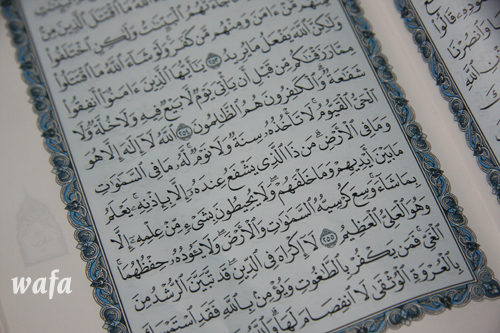 جَآءَتْهُمُ ٱلْبَيِّنَٰتُ وَلَٰكِنِ ٱخْتَلَفُوا۟
فَمِنْهُم مَّنْ ءَامَنَ وَمِنْهُم مَّن كَفَرَ وَلَوْ شَآءَ ٱللَّهُ مَا ٱقْتَتَلُوا۟
وَلَٰكِنَّ ٱللَّهَ يَفْعَلُ مَا يُرِيدُ ٢٥٣ يَٰٓأَيُّهَا ٱلَّذِينَ ءَامَنُوٓا۟ أَنفِقُوا۟
مِمَّا رَزَقْنَٰكُم مِّن قَبْلِ أَن يَأْتِىَ يَوْمٌ لَّا بَيْعٌ فِيهِ وَلَا خُلَّةٌ وَلَا
شَفَٰعَةٌ وَٱلْكَٰفِرُونَ هُمُ ٱلظَّٰلِمُونَ ٢٥٤ ٱللَّهُ لَآ إِلَٰهَ إِلَّا هُوَ
ٱلْحَىُّ ٱلْقَيُّومُ لَا تَأْخُذُهُۥ سِنَةٌ وَلَا نَوْمٌ لَّهُۥ مَا فِى ٱلسَّمَٰوَٰتِ
وَمَا فِى ٱلْأَرْضِ مَن ذَا ٱلَّذِى يَشْفَعُ عِندَهُۥٓ إِلَّا بِإِذْنِهِۦ يَعْلَمُ
مَا بَيْنَ أَيْدِيهِمْ وَمَا خَلْفَهُمْ وَلَا يُحِيطُونَ بِشَىْءٍ مِّنْ عِلْمِهِۦٓ إِلَّا
بِمَا شَآءَ وَسِعَ كُرْسِيُّهُ ٱلسَّمَٰوَٰتِ وَٱلْأَرْضَ وَلَا يَـُٔودُهُۥ حِفْظُهُمَا
وَهُوَ ٱلْعَلِىُّ ٱلْعَظِيمُ ٢٥٥ لَآ إِكْرَاهَ فِى ٱلدِّينِ قَد تَّبَيَّنَ ٱلرُّشْدُ مِنَ
ٱلْغَىِّ فَمَن يَكْفُرْ بِٱلطَّٰغُوتِ وَيُؤْمِنۢ بِٱللَّهِ فَقَدِ ٱسْتَمْسَكَ
بِٱلْعُرْوَةِ ٱلْوُثْقَىٰ لَا ٱنفِصَامَ لَهَا
wafa